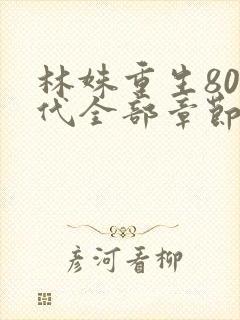 林妹重生80
代全部章節
彦河看柳